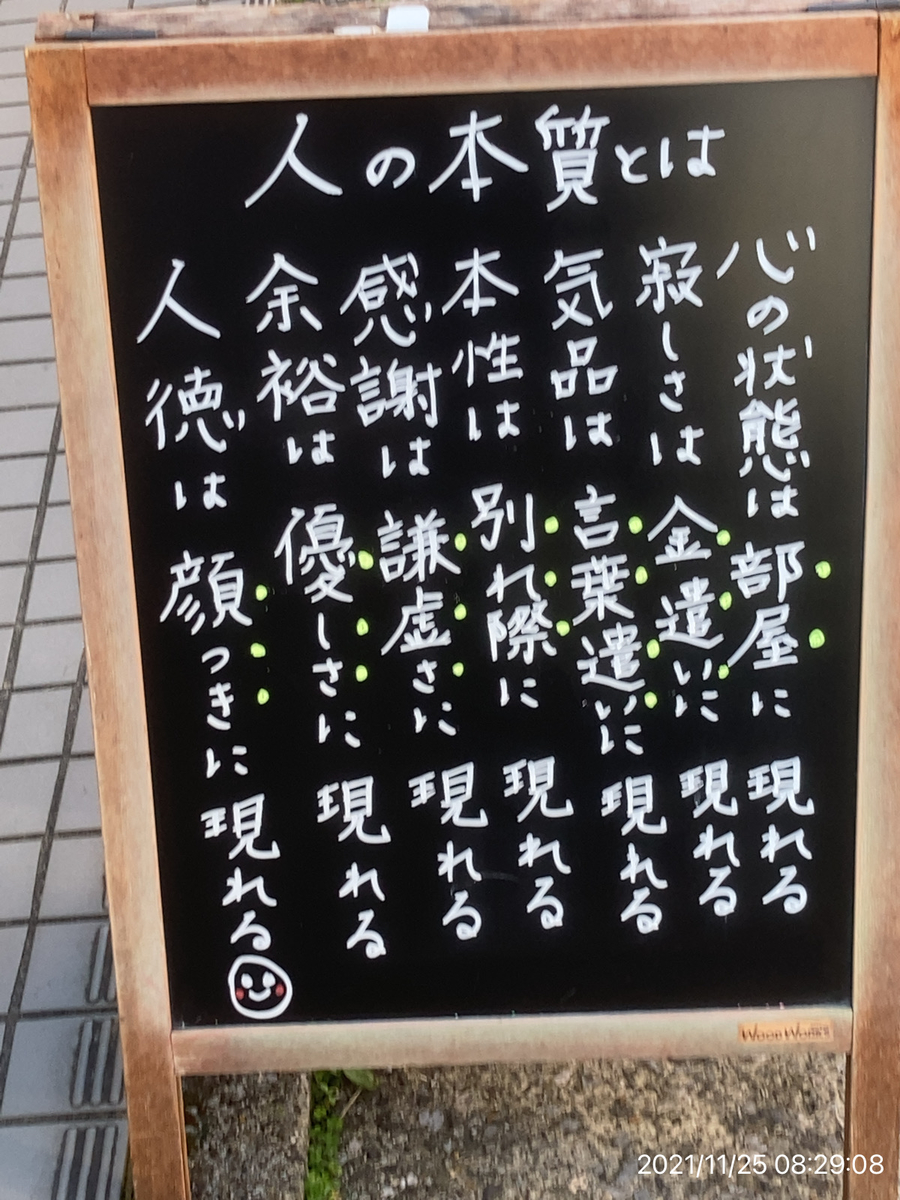 人の本質とは
心の状態は部屋に現れる
寂しさは金遣いに現れる
気品は言葉遣いに現れる
本性は別れ際に現れる
感謝は謙虚さに現れる
余裕は優しさに現れる
人徳は顔つきに現れる
WoodWorks
2021/11/25 08:29:08